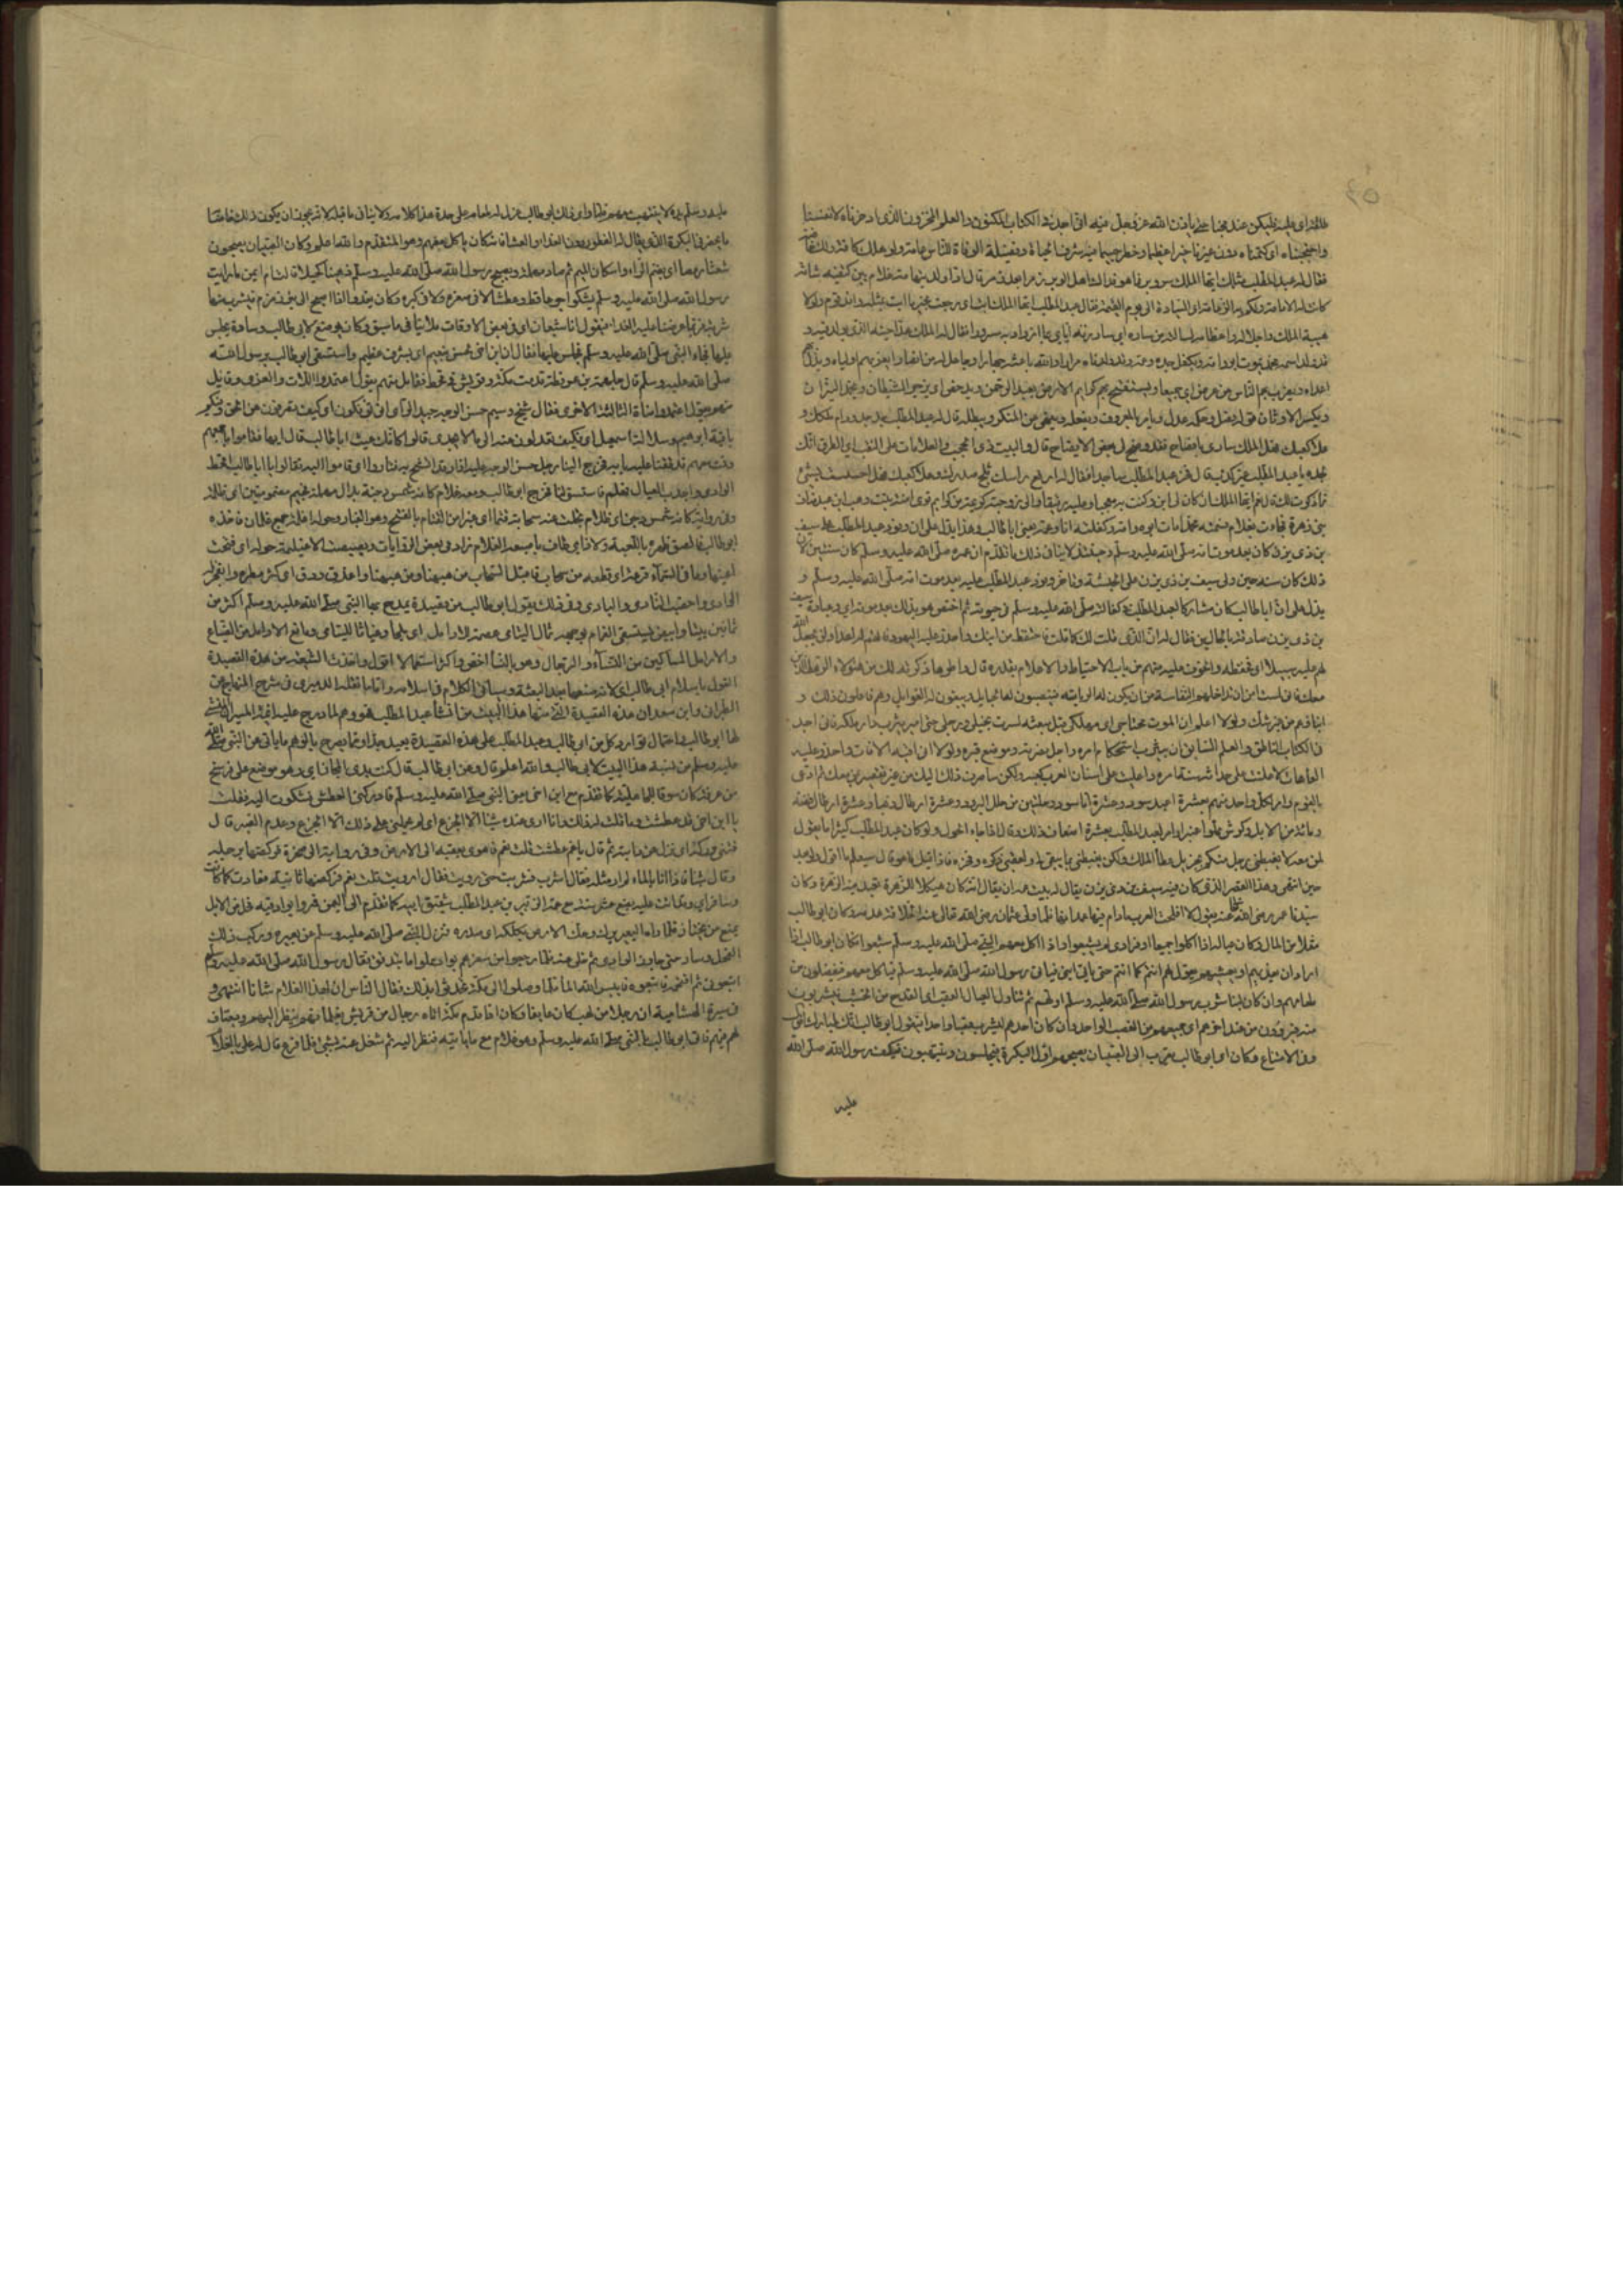 عليه فليكن عندك مخبا حتى ياذن الله عز وجل فيه انى اجد فى الكتاب المكنون والعلم المخزون الذى ادخرناه لانفسنا
واحتجبناه اى كتمناه دون غيرنا خبرا عظيما وخطرا جسيما فيه شرف الحياة وفضيلة الوفاة للناس عامة ولرهطك كافة ولك خاصة
فقال له عبد المطلب مثلك ايها الملك سر وبر فما هو فداك اهل الوبر زمرا بعد زمر قال اذا ولد بتهامة غلام بين كتفيه شامة
كانت له الامامة ولكم به الزعامة اى السيادة الى يوم القيمة فقال عبد المطلب ايها الملك ابت بخير ما آب بمثله وافد قوم ولولا
هيبة الملك واجلاله واعظامه لسالته من ساره اى ساررته اياى ما ازداد به سرورا فقال له الملك هذا حينه الذى يولد فيه او
قد ولد اسمه محمد يموت ابوه وامه ويكفله جده وعمه وقد ولدناه مرارا والله باعثه جهارا وجاعل له منا انصارا يعز بهم اولياءه ويذل بهم
اعداءه ويضرب بهم الناس عن عرض اى جميعا ويستفتح بهم كرايم الارض يعبد الرحمن ويدحض اى يزجر الشيطان ويخمد النيران
ويكسر الاوثان قوله فصل وحكمه عدل ويامر بالمعروف ويفعله وينهى عن المنكر ويبطله قال له عبد المطلب جد جدك ودام ملكك و
علا كعبك فهل الملك سارى بافصاح فقد وضح لى بعض الايضاح قال والبيت ذى الحجب والعلامات على النقب اى الطرق انك
لجده يا عبد المطلب غير كذب قال فخر عبد المطلب ساجدا فقال له ارفع راسك ثلج صدرك وعلا كعبك فهل احسست بشئ
مما ذكرت لك قال نعم ايها الملك انه كان لى ابن وكنت به معجبا وعليه رفيقا وانى زوجته كريمة من كرايم قومى امنة بنت وهب ابن عبد مناف
بن زهرة فجاءت بغلام فسميته محمدا مات ابوه وامه وكفلته انا وعمه يعنى ابا طالب وهذا يدل على ان وفود عبد المطلب على سيف
بن ذى يزن كان بعد موت امه صلى الله عليه وسلم وحينئذ لا ينافى ذلك ما تقدم ان عمره صلى الله عليه وسلم كان سنتين لان
ذلك كان سنه حين ولى سيف بن ذى يزن على الحبشة وتاخر وفود عبد المطلب عليه بعد موت امه صلى الله عليه وسلم و
يدل على ان ابا طالب كان مشاركا لعبد المطلب فى كفالته صلى الله عليه وسلم فى حيوته ثم اختص هو بذلك بعد موته اى وعبارة سيف
بن ذى يزن صادقة بالحالين فقال له ان الذى قلت لك كما قلت فاحتفظ من ابنك واحذر عليه اليهود فانهم له اعداء ولن يجعل الله
لهم عليه سبيلا اى فحفظه والخوف عليه منهم من باب الاحتياط والاعلام بقدره قال واطو ما ذكرته لك عن هؤلاء الرهط الذين
معك فانى لست آمن ان تداخلهم النفاسة من ان يكون له الرياسة فينصبون له الحبايل ويبغون له الغوايل وهم فاعلون ذلك و
ابناؤهم من غير شك ولولا اعلم ان الموت مجتاحى اى مهلكى قبل مبعثه لسرت بخيلى ورجلى حتى اصير يثرب دار ملكه فانى اجد
فى الكتاب الناطق والعلم السابق ان يثرب استحكام امره واهل نصرته وموضع قبره ولولا انى اقيه الافات واحذر عليه
العاهات لاعلنت على حداثة سنه امره واعليت على اسنان العرب كعبه ولكن سأصرف ذلك اليك من غير تقصير بمن معك ثم دعى
بالقوم وامر لكل واحد منهم بعشرة اعبد سود وعشرة اماء سود وحلتين من حلل البرود وعشرة ارطال ذهبا وعشرة ارطال فضة
ومائة من الابل وكرش مملوا عنبرا وامر لعبد المطلب بعشرة اضعاف ذلك وقال اذا جاء الحول فوكان عبد المطلب كثيرا ما يقول
لمن معه لا يغبطنى رجل منكم بجزيل عطا الملك ولكن يغبطنى بما يبقى لى ولعقبى ذكره وفخره فاذا قيل له ما هو قال سيعلم ما اقول ولو بعد
حين انتهى وهذا القصر الذى كان فيه سيف بن ذى يزن يقال له بيت غمدان يقال انه كان هيكلا للزهرة تعبد فيه الزهرة وكان
سيدنا عمر رضى الله تعالى عنه يقول لا افلحت العرب مادام فيها غمدانها فلما ولى عثمان رضى الله تعالى عنه الخلافة هدمه وكان ابو طالب
مقلا من المال وكان عياله اذا اكلوا جميعا او فرادى لم يشبعوا واذا اكل معهم النبى صلى الله عليه وسلم شبعوا فكان ابو طالب اذا
اراد ان يغديهم او يعشيهم يقول لهم انتم كما انتم حتى ياتى ابنى فياتى رسول الله صلى الله عليه وسلم فياكل معهم فيفضلون من
طعامهم وان كان لبنا شرب رسول الله صلى الله عليه وسلم اولهم ثم تناول العيال القعب اى القدح من الخشب فيشربون
منه فيروون من عند اخرهم اى جميعهم من القعب الواحد وان كان احدهم ليشرب قعبا واحدا فيقول ابو طالب انك لمبارك
وفى الامتاع وكان ابو طالب يقرب الى الصبيان تصبيحهم اول البكرة فيجلسون وينتهبون فيكف رسول الله صلى الله
عليه
عليه وسلم يده لا ينتهب معهم فلما راى ذلك ابو طالب عزل له طعامه على حدة هذا كلامه ولا ينافى ما قبله لانه يجوز ان يكون ذلك خاصا
بما يحضر فى البكرة الذى يقال له الفطور دون الغدا والعشا فانه كان ياكل معهم وهو المتقدم والله اعلم وكان الصبيان يصبحون
شعثا رمصا اى بضم الراء واسكان الميم ثم صاد مهملة ويصبح رسول الله صلى الله عليه وسلم دهينا كحيلا قالت ام ايمن ما رايت
رسول الله صلى الله عليه وسلم يشكو جوعا قط ولا عطشا لا فى صغره ولا فى كبره وكان يغدو اذا اصبح الى بئر زمزم فيشرب منها
شربة فربما عرضنا عليه الغداء فيقول انا شبعان اى فى بعض الاوقات فلا ينافى ما سبق وكان يوضع لابى طالب وسادة يجلس
عليها فجاء النبى صلى الله عليه وسلم فجلس عليها فقال ان ابن اخى ليحس بنعيم اى بشرف عظيم واستسقى ابو طالب برسول الله
صلى الله عليه وسلم قال جلهمة بن عرفطة قدمت مكة وقريش فى قحط فقايل منهم يقول اعتمدوا اللات والعزى وقايل
منهم يقول اعتمدوا مناة الثالثة الاخرى فقال شيخ وسيم حسن الوجه جيد الراى انى تؤفكون اى كيف تصرفون عن الحق وفيكم
باقية ابراهيم وسلالة اسمعيل اى فكيف تعدلون عنه الى ما لا يجدى قالوا كانك عنيت ابا طالب قال ايها فقاموا باجمعهم
وقمت معهم فدققنا عليه بابه فخرج الينا رجل حسن الوجه عليه ازار قد اتشح به فثاروا اى قاموا اليه فقالوا يا ابا طالب اقحط
الوادى واجدب العيال فهلم فاستسق لنا فخرج ابو طالب ومعه غلام كانه شمس دجنة بدال مهملة فجيم مضمومتين اى ظلمة
وفى رواية كانه شمس دجن اى ظلام تجلت عنه سحابة قتما اى من القتام بالفتح وهو الغبار وحوله اغيلمة جمع غلمان فاخذه
ابو طالب فالصق ظهره بالكعبة ولاذ اى طاف باصبعه الغلام زاد فى بعض الروايات وبصبصت الاغيلمة حوله اى فتحت
اعينها وما فى السماء قزعة اى قطعة من سحاب فاقبل السحاب من ههنا ومن ههنا واغدق ودق اى كثر مطره وانفجر له
الوادى واخصب النادى والبادى وفى ذلك يقول ابو طالب من قصيدة يمدح بها النبى صلى الله عليه وسلم اكثر من
ثمانين بيتا وابيض يستسقى الغمام بوجهه ثمال اليتامى عصمة للارامل اى ملجا وغياثا لليتامى ومانع الارامل من الضياع
والارامل المساكين من النساء والرجال وهو بالنساء اخص واكثر استعمالا اقول واخذت الشيعة من هذه القصيدة
القول باسلام ابى طالب اى لانه صنفها بعد البعثة وسياتى الكلام فى اسلامه واما ما نقله الدميرى فى شرح المنهاج عن
الطبرانى وابن سعد ان هذه القصيدة التى منها هذا البيت من انشاء عبد المطلب فهو وهم لما درج عليه ائمة السير ان المنشئ
لها ابو طالب واحتمال توارد كل من ابى طالب وعبد المطلب على هذه القصيدة بعيد جدا ومما يصرح بالوهم ما ياتى عن النبى صلى الله
عليه وسلم من نسبة هذا البيت لابى طالب والله اعلم قال وعن ابى طالب قال كنت بذى المجاز اى وهو موضع على فرسخ
من عرفة كان سوقا للجاهلية كما تقدم مع ابن اخى يعنى النبى صلى الله عليه وسلم فادركنى العطش فشكوت اليه فقلت
يا ابن اخى قد عطشت وما قلت له ذلك وانا ارى عنده شيئا الا الجزع اى لم يحملنى على ذلك الا الجزع وعدم الصبر قال
فثنى وركه اى نزل عن دابته ثم قال يا عم عطشت قلت نعم فاهوى بعقبه الى الارض وفى رواية الى صخرة فركضها برجله
وقال شيئا فاذا انا بالماء لم ار مثله فقال اشرب فشربت حتى رويت فقال ارويت قلت نعم فركضها ثانية فعادت كما كانت
وسافر اى وقد اتت عليه بضع عشرة سنة مع عمه الزبير بن عبد المطلب شقيق ابيه كما تقدم الى اليمن فمروا بواد فيه فحل من الابل
يمنع من يجتاز فلما راه البعير برك وحك الارض بكلكله اى صدره فنزل النبى صلى الله عليه وسلم عن بعيره وركب ذلك
الفحل وسار حتى جاوز الوادى ثم خلى عنه فلما رجعوا من سفرهم بواد مملو ماء يتدفق فقال رسول الله صلى الله عليه وسلم
اتبعونى ثم اقتحمه فاتبعوه فايبس الله الماء فلما وصلوا الى مكة تحدثوا بذلك فقال الناس ان لهذا الغلام شانا انتهى و
فى سيرة الهشامية ان رجلا من لهب كان عايفا وكان اذا قدم مكة اتاه رجال من قريش بغلمانهم ينظر اليهم ويعتاف
لهم فيهم فاتى ابو طالب بالنبى صلى الله عليه وسلم وهو غلام مع من ياتيه فنظر اليه ثم شغل عنه بشئ فلما فرغ قال له على بالغلام